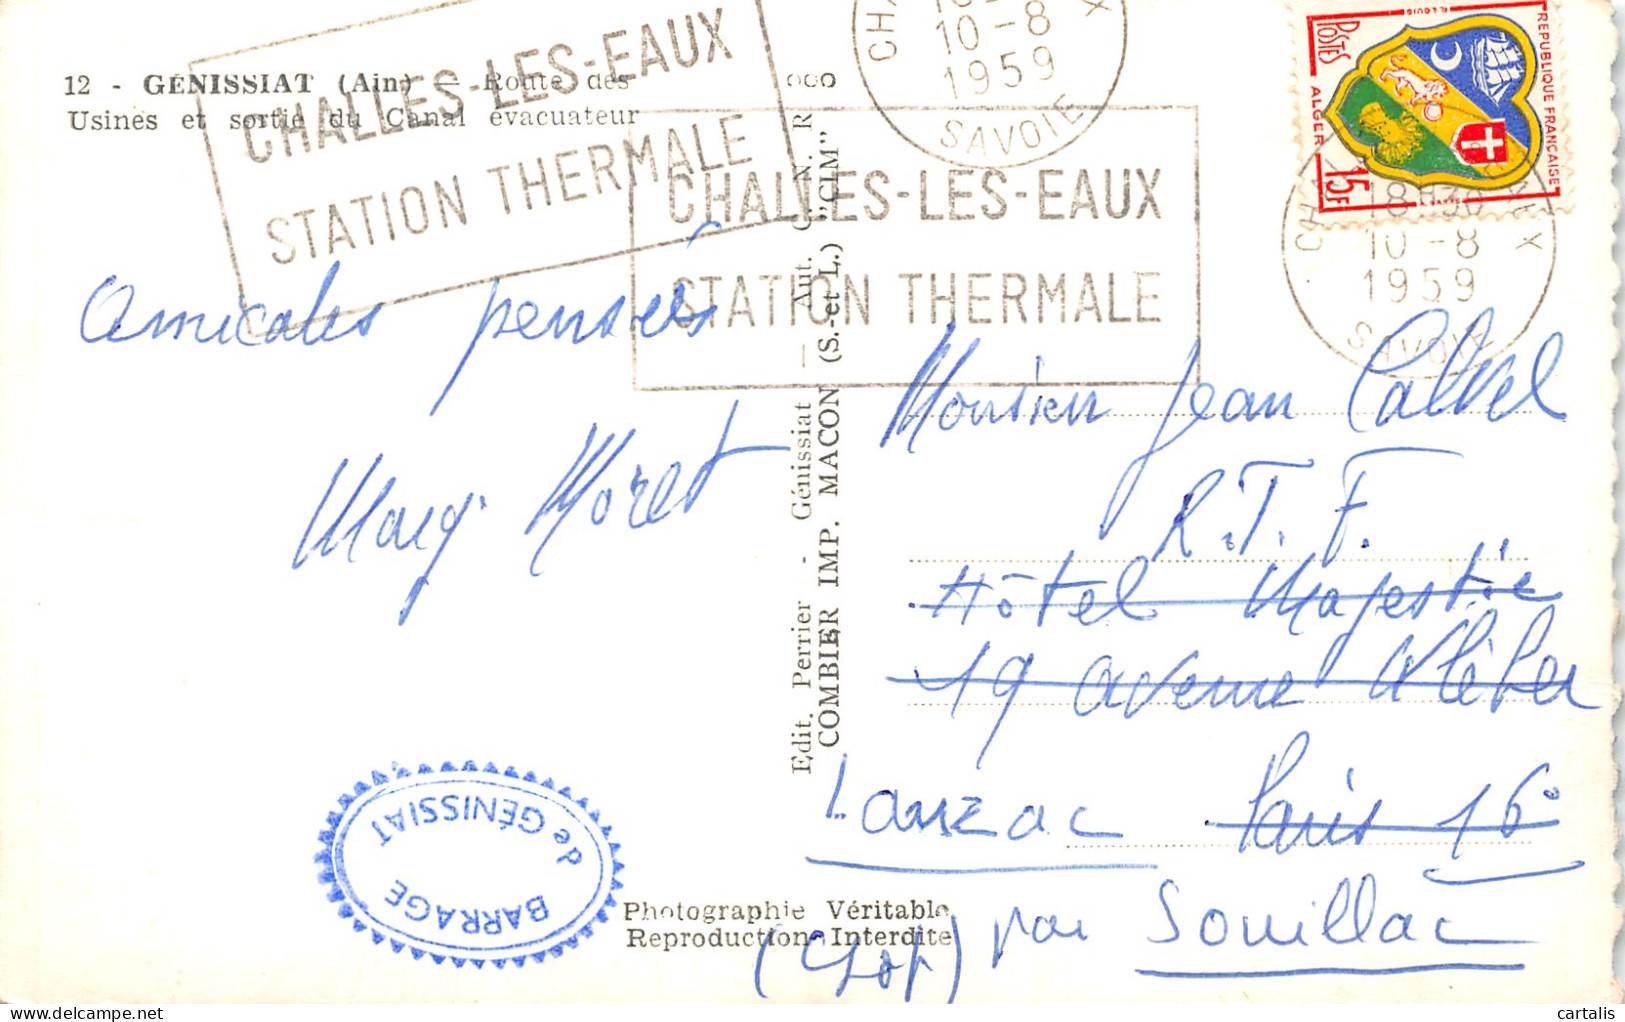 12 - GÉNISSIAT (Ain) — Route des
Usines et sortie du Canal évacuateur
CHALLES-LES-EAUX
STATION THERMALE
CHALLES-LES-EAUX
STATION THERMALE
10-8
1959
SAVOIE
18H30
10-8
1959
SAVOIE
REPUBLIQUE FRANCAISE
POSTES
ALGER
15F
Amicales pensées
Marg. Moret
Edit. Perrier - Génissiat — Aut. C. N. R
COMBIER IMP. MACON (S.-et L.) "CIM"
Monsieur Jean Calvel
R.T.F.
Hôtel Majestic
19 avenue Kléber
Lanzac Paris 16e
par Souillac
(Lot)
BARRAGE
de GÉNISSIAT
Photographie Véritable
Reproduction Interdite
cartalis